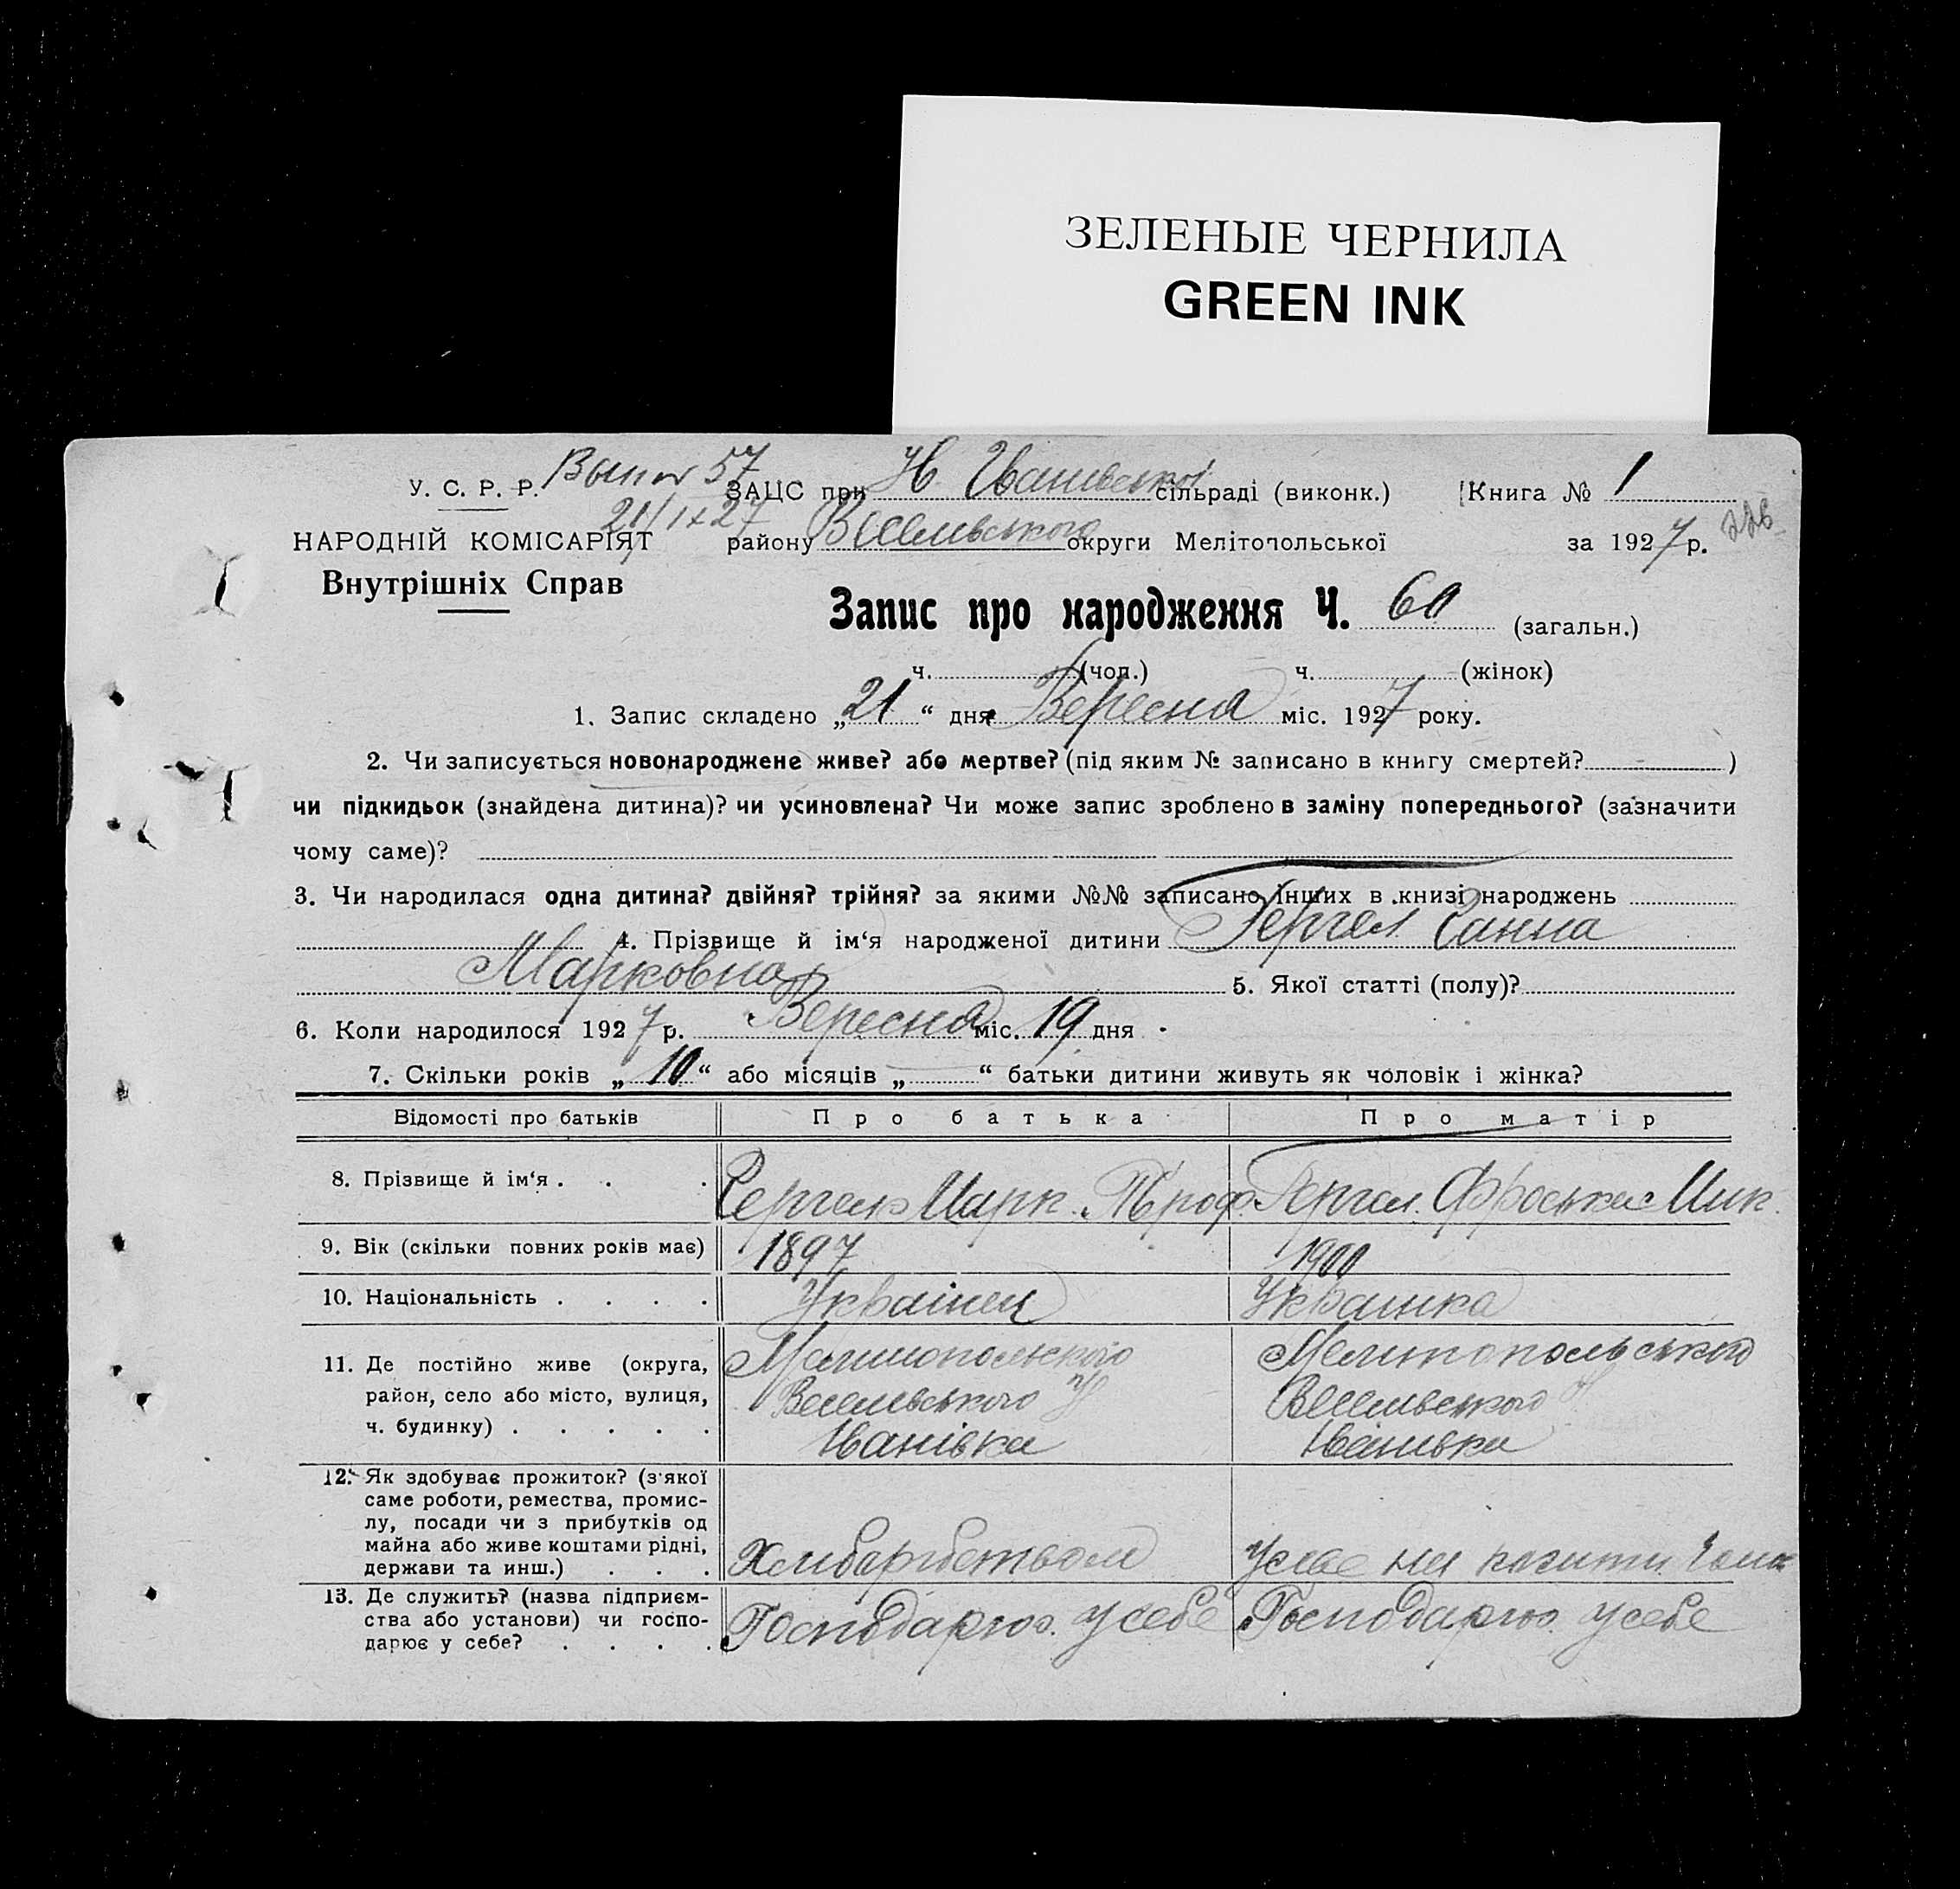 ЗЕЛЕНЫЕ ЧЕРНИЛА
GREEN INK
У. С. Р. Р. 57 ЗАЦС при Н. Іванівської сільраді (виконк.) Книга № 1
21/IX 27
НАРОДНІЙ КОМІСАРІЯТ району Веселівського округи Мелітопольської за 1927 р.
Внутрішніх Справ
Запис про народження Ч. 60 (загальн.)
ч. (чол.) ч. (жінок)
1. Запис складено „21“ дня Вересня міс. 1927 року.
2. Чи записується новонароджене живе? або мертве? (під яким № записано в книгу смертей? )
чи підкидьок (знайдена дитина)? чи усиновлена? Чи може запис зроблено в заміну попереднього? (зазначити
чому саме)?
3. Чи народилася одна дитина? двійня? трійня? за якими №№ записано інших в книзі народжень
4. Прізвище й ім‘я народженої дитини Гергел Ганна
Марковна 5. Якої статті (полу)?
6. Коли народилося 1927 р. Вересня міс. 19 дня
7. Скільки років „10“ або місяців „ “ батьки дитини живуть як чоловік і жінка?
Відомості про батьків Про батька Про матір
8. Прізвище й ім‘я . . . Гергель Марк. Троф. Гергел. Фроська Мик.
9. Вік (скільки повних років має) 1897 1900
10. Національність . . . . Українец Українка
11. Де постійно живе (округа, Мелитопольского Мелитопольського
район, село або місто, вулиця, Веселивського Н Веселивського Н
ч. будинку) . . . . . Іванівка Іванивка
12. Як здобуває прожиток? (з якої
саме роботи, ремества, промис-
лу, посади чи з прибутків од
майна або живе коштами рідні,
держави та инш.) . . . Хлибарбством на
13. Де служить? (назва підприєм-
ства або установи) чи госпо- Господарює у себе Господарює у себе
дарює у себе? . . . .